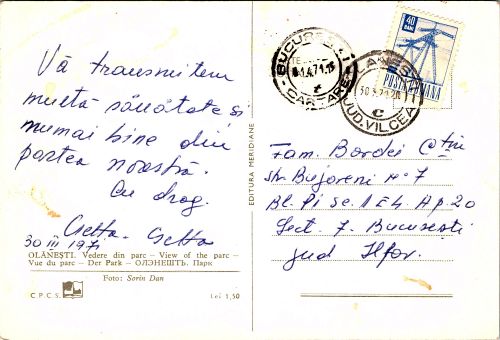 Vă transmitem
multă sănătate și
numai bine din
partea noastră.
Cu drag.
Getta - Getta
30 III 1971
OLĂNEȘTI. Vedere din parc — View of the parc —
Vue du parc — Der Park — ОЛЭНЕШТЬ. Парк
Foto: Sorin Dan
C.P.C.S.
Lei 1,50
EDITURA MERIDIANE
BUCUREȘTI
CARTARE
JUD. VILCEA
40 BANI
POSTA ROMANA
Fam. Bordei
str Bujoreni nº 7
Ap 20
Sect. 7. București
jud Ilfov.